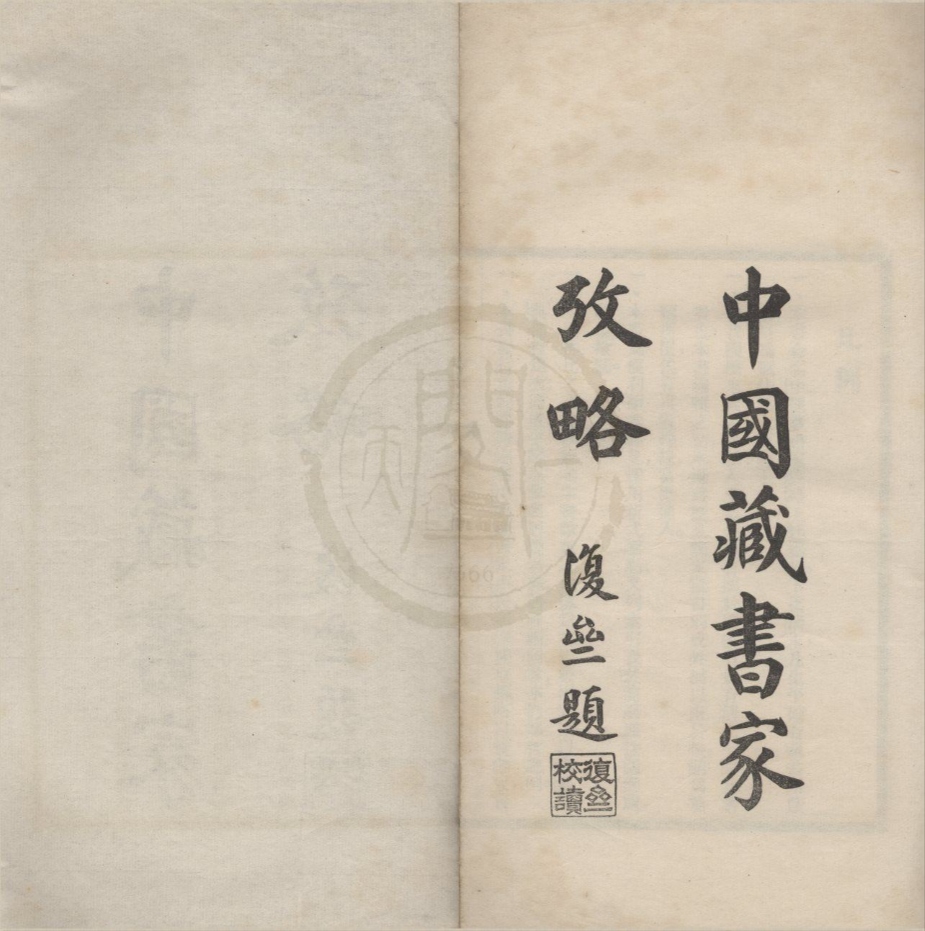 中國藏書家
攷略
復題
復校讀